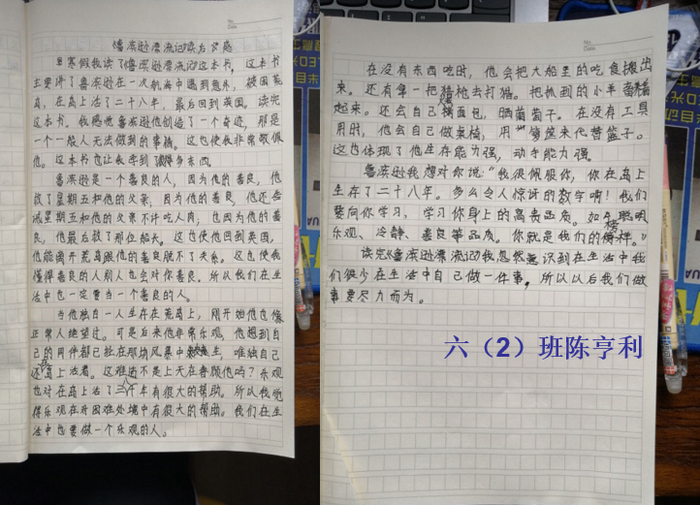 《鲁滨逊漂流记》读后感
这寒假我读了《鲁滨逊漂流记》这本书，这本书
主要讲了鲁滨逊在一次航海中遇到意外，被困荒
岛，在岛上活了二十八年，最后回到英国。读完
这本书，我感觉鲁滨逊他创造了一个奇迹，那是
一个一般人无法做到的事情。这也使我非常敬佩
他。这本书也让我学到了很多东西。
鲁滨逊是一个善良的人，因为他的善良，他
救了星期五和他的父亲，因为他的善良，他还告
诫星期五和他的父亲不许吃人肉；也因为他的善
良，他最后救了那位船长。这也使他回到英国，
他能离开荒岛跟他的善良脱不了关系。这也使我
懂得善良的人别人也会对你善良。所以我们在生
活中也一定要当一个善良的人。
当他独自一人生存在荒岛上，刚开始他也像
正常人绝望过。可是后来他非常乐观，他想到自
己的同伴都已经在那场风暴中丧生，唯独自己
还在岛上活着。这难道不是上天在眷顾他吗？乐观
也对在岛上活了二十八年有很大的帮助。所以我觉
得乐观在于困难处境中有很大的帮助。我们在生
活中也要做一个乐观的人。
在没有东西吃时，他会把大船里的吃食搬出
来。还有拿一把猎枪去打猎。把抓到的小羊圈养
起来。还会自己做面包，晒葡萄干。在没有工具
用时，他会自己做桌椅，用箩筐来代替篮子。
这也体现了他生存能力强，动手能力强。
鲁滨逊我想对你说：“我很佩服你，你在岛上
生存了二十八年。多么令人惊讶的数字啊！我们
要向你学习，学习你身上的高贵品质。如聪明
乐观、冷静、善良等品质。你就是我们的榜样。”
读完《鲁滨逊漂流记》我忽然意识到在生活中我
们很少在生活中自己做一件事，所以以后我们做
事要尽力而为。
六（2）班陈亨利